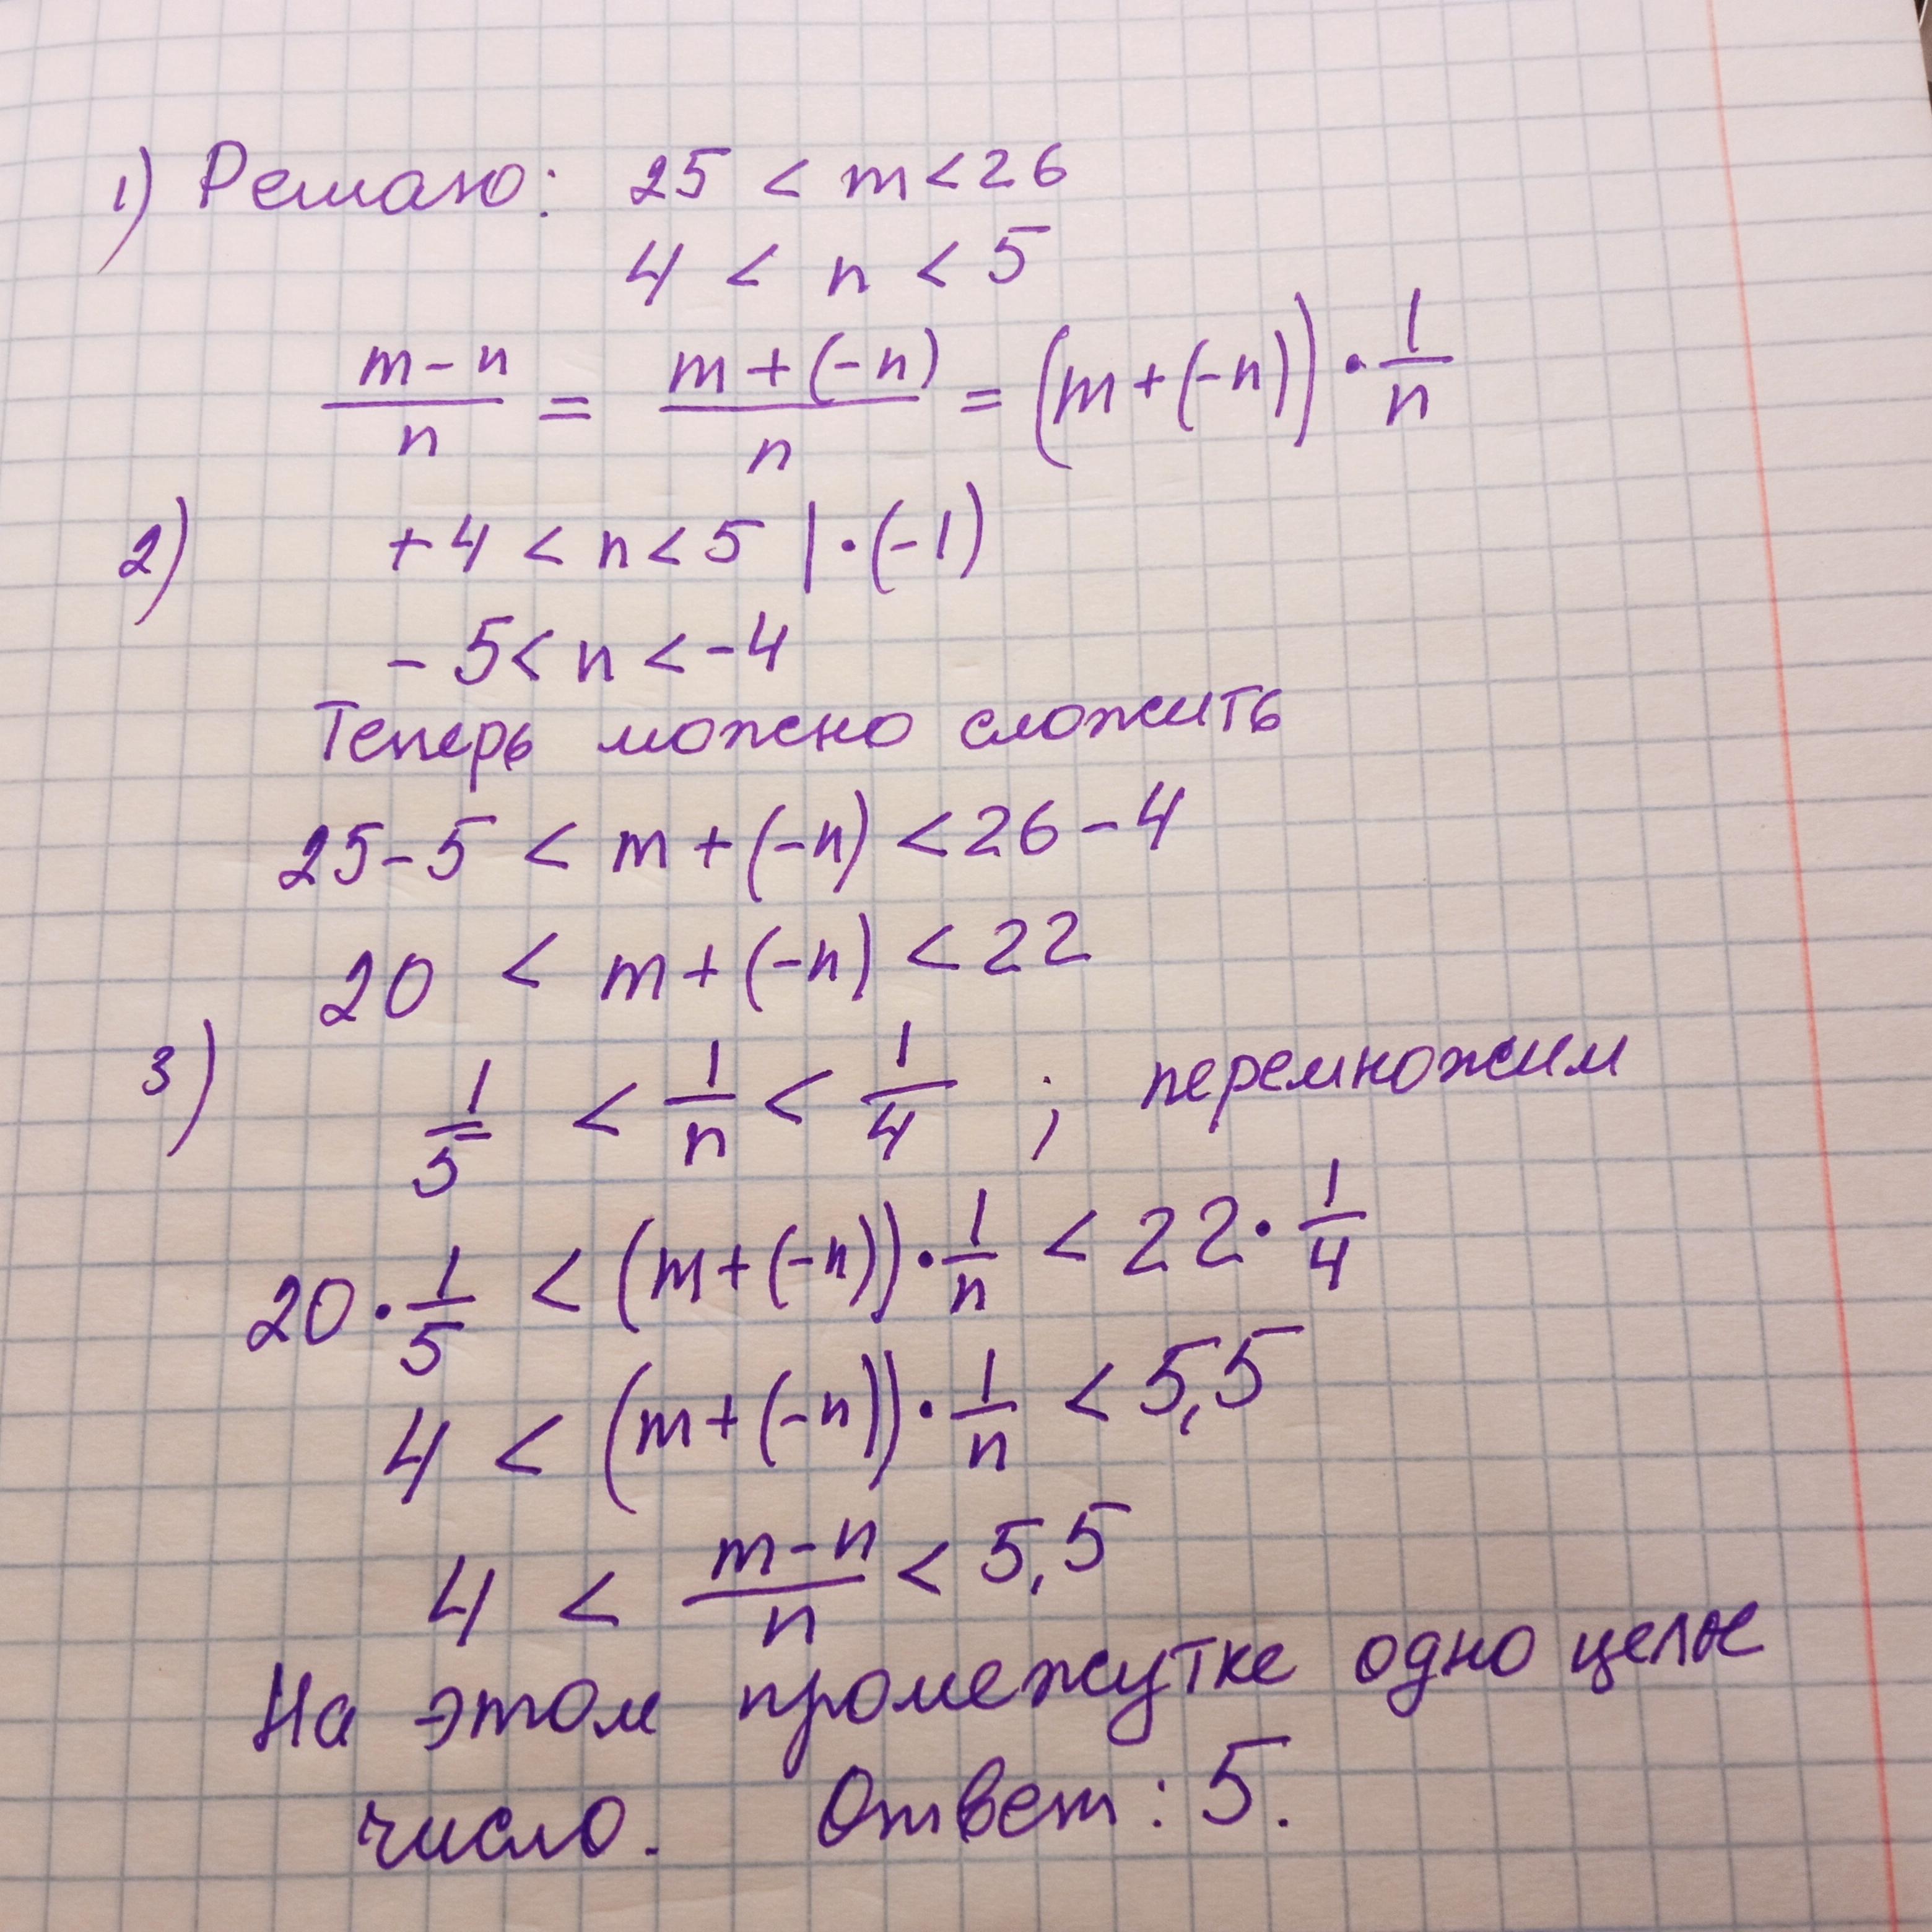 1) Решаю: 25 < m < 26
4 < n < 5
m - n / n = m + (-n) / n = (m + (-n)) · 1/n
2) +4 < n < 5 | · (-1)
- 5 < n < -4
Теперь можно сложить
25 - 5 < m + (-n) < 26 - 4
20 < m + (-n) < 22
3) 1/5 < 1/n < 1/4 ; перемножим
20 · 1/5 < (m + (-n)) · 1/n < 22 · 1/4
4 < (m + (-n)) · 1/n < 5,5
4 < m - n / n < 5,5
На этом промежутке одно целое
число. Ответ: 5.